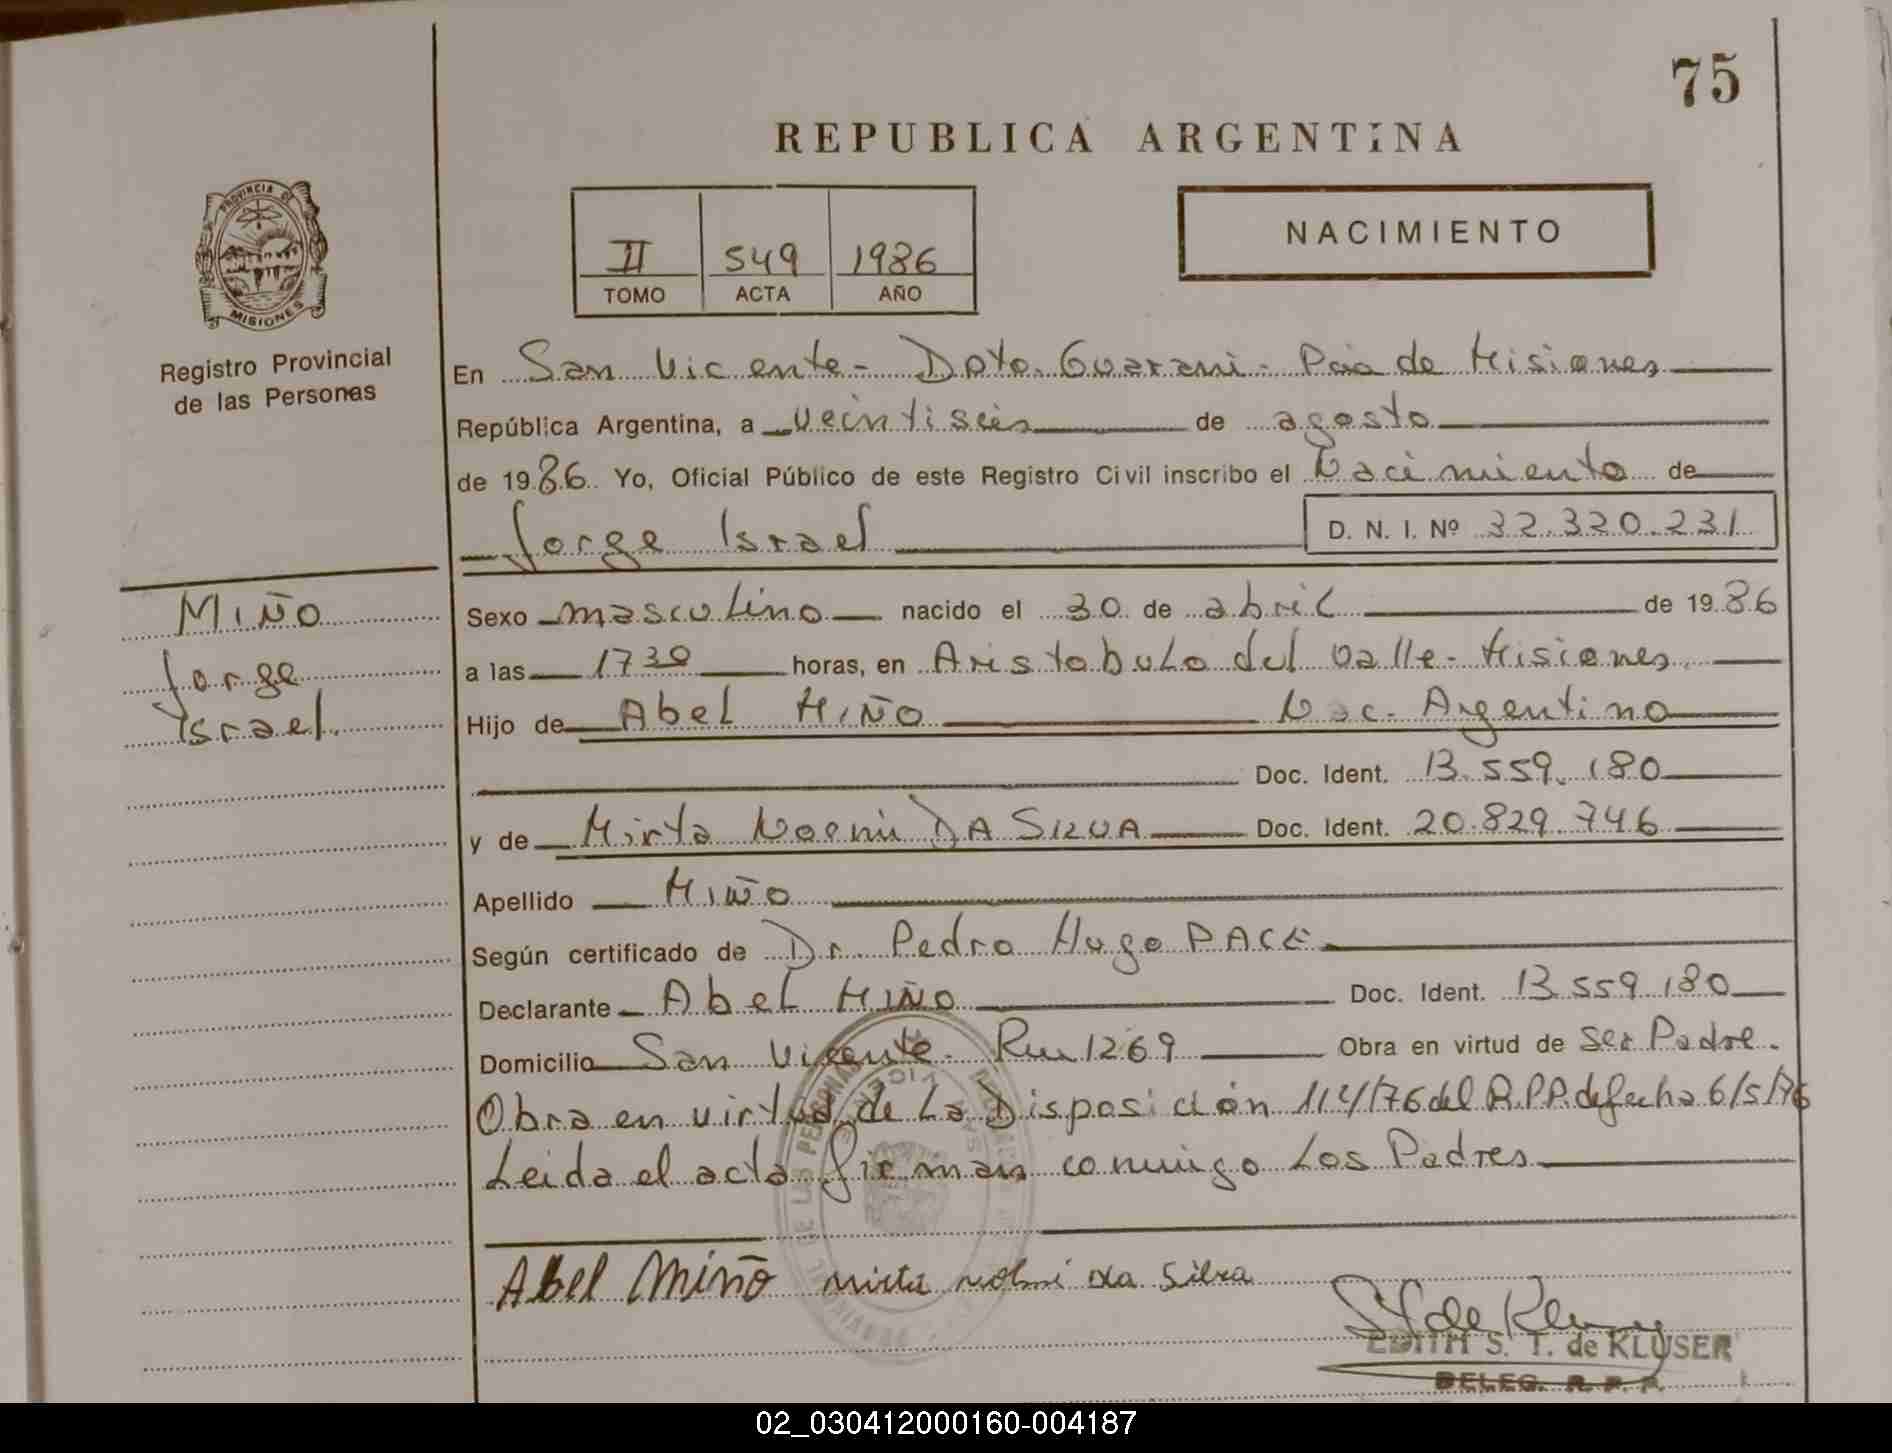 75
REPUBLICA ARGENTINA
PROVINCIA DE
MISIONES
Registro Provincial
de las Personas
II 549 1986
TOMO ACTA AÑO
NACIMIENTO
En San Vicente - Dpto. Guarani - Pcia de Misiones
República Argentina, a veintiseis de agosto
de 1986 Yo, Oficial Público de este Registro Civil inscribo el Nacimiento de
Jorge Israel D. N. I. Nº 32.320.231
MIÑO
Jorge
Israel.
Sexo masculino nacido el 30 de abril de 1986
a las 1730 horas, en Aristobulo del Valle - Misiones
Hijo de Abel MIÑO Nac. Argentino
Doc. Ident. 13.559.180
y de Mirta Noemi DA SILVA Doc. Ident. 20.829.746
Apellido MIÑO
Según certificado de Dr. Pedro Hugo PACE
Declarante Abel MIÑO Doc. Ident. 13.559.180
Domicilio San Vicente - 1269 Obra en virtud de ser Padre.
Obra en virtud de la Disposición 114/76 del R.P.P. de fecha 6/5/76
Leida el acta firman conmigo los Padres
Abel Miño mirta da Silva
EDITH S. T. de KLUSER
DELEG. R. P. P.
02_030412000160-004187